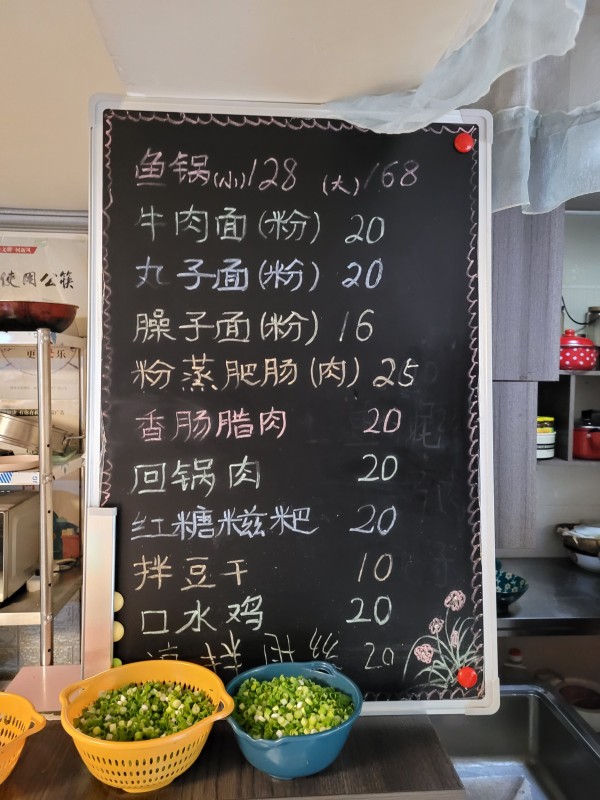 鱼锅(小)128 (大)168
牛肉面(粉) 20
丸子面(粉) 20
臊子面(粉) 16
粉蒸肥肠(肉) 25
香肠腊肉 20
回锅肉 20
红糖糍粑 20
拌豆干 10
口水鸡 20
凉拌 丝 20
使用公筷